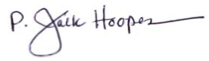 P. Jack Hooper